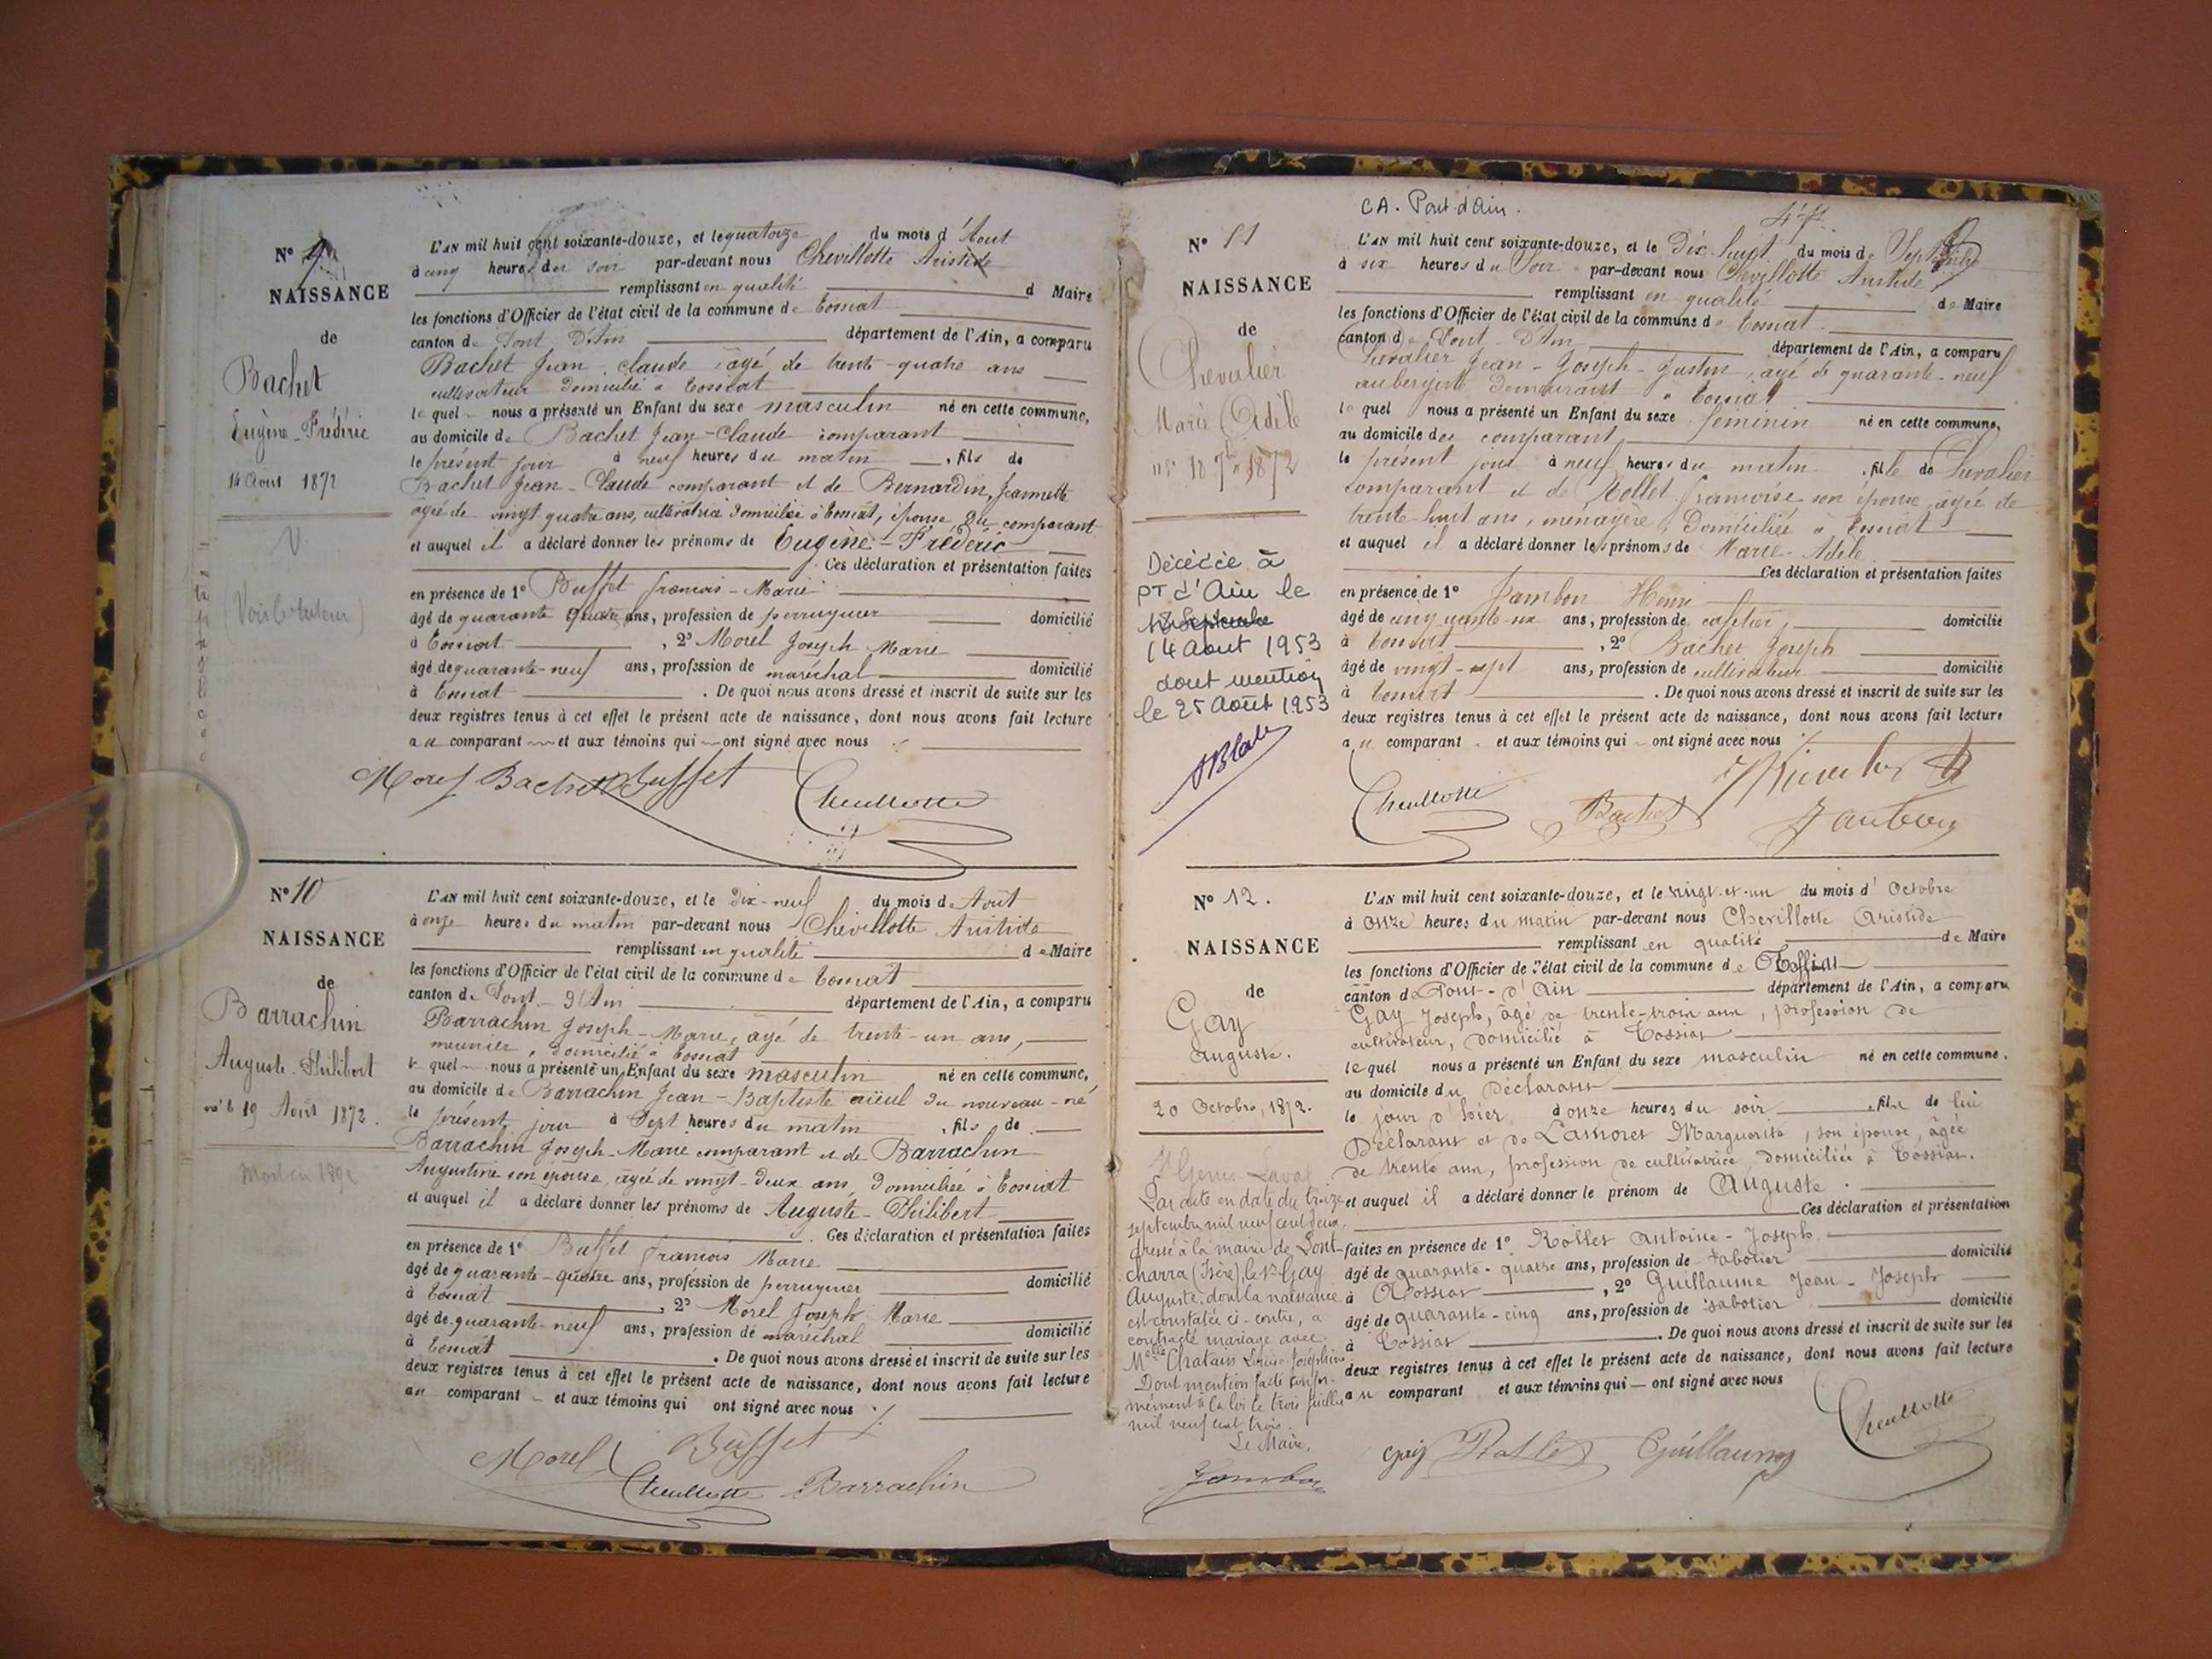 Nº 9
NAISSANCE
de
Bachet
Eugène-Frédéric
14 Août 1872
V.
L'AN mil huit cent soixante-douze, et le quatorze du mois d'Aout
à cinq heures du soir par-devant nous Chevillotte Aristide
remplissant en qualité d Maire
les fonctions d'Officier de l'état civil de la commune de Tossiat
canton de Pont D'Ain département de l'Ain, a comparu
Bachet Jean-Claude âgé de trente-quatre ans
cultivateur domicilié à Tossiat
lequel nous a présenté un Enfant du sexe masculin né en cette commune,
au domicile de Bachet Jean-Claude comparant
le présent jour à neuf heures du matin, fils de
Bachet Jean-Claude comparant et de Bernardin, Jeannette
âgée de vingt quatre ans, cultivatrice domiciliée à Tossiat, épouse du comparant
et auquel il a déclaré donner les prénoms de Eugène-Frédéric
Ces déclaration et présentation faites
en présence de 1º Buffet françois-Marie
âgé de quarante quatre ans, profession de perruquier domicilié
à Tossiat, 2º Morel Joseph Marie
âgé de quarante-neuf ans, profession de maréchal domicilié
à Tossiat. De quoi nous avons dressé et inscrit de suite sur les
deux registres tenus à cet effet le présent acte de naissance, dont nous avons fait lecture
au comparant et aux témoins qui ont signé avec nous
Morel Bachet Buffet Chevillotte
Nº 10
NAISSANCE
de
Barrachin
Auguste-Philibert
né le 19 Août 1872.
L'AN mil huit cent soixante-douze, et le Dix-neuf du mois d Août
à onze heures du matin par-devant nous Chevillotte Aristide
remplissant en qualité de Maire
les fonctions d'Officier de l'état civil de la commune de Tossiat
canton de Pont-D'Ain département de l'Ain, a comparu
Barrachin Joseph-Marie, âgé de trente-un ans,
meunier, domicilié à Tossiat
lequel nous a présenté un Enfant du sexe masculin né en cette commune,
au domicile de Barrachin Jean-Baptiste aïeul du nouveau-né
le présent jour à Sept heures du matin, fils de
Barrachin Joseph-Marie comparant et de Barrachin
Augustine son épouse, âgée de vingt-deux ans, domiciliée à Tossiat
et auquel il a déclaré donner les prénoms de Auguste-Philibert
Ces déclaration et présentation faites
en présence de 1º Buffet francois Marie
âgé de quarante-quatre ans, profession de perruquier domicilié
à Tossiat, 2º Morel Joseph Marie
âgé de quarante-neuf ans, profession de maréchal domicilié
à Tossiat. De quoi nous avons dressé et inscrit de suite sur les
deux registres tenus à cet effet le présent acte de naissance, dont nous avons fait lecture
au comparant et aux témoins qui ont signé avec nous
Morel Buffet
Chevillotte Barrachin
CA. Pont d'Ain.
Nº 11
NAISSANCE
de
Chevalier
Marie Adèle
18 7bre 1872
Décédée à
PT d'Ain le
18 Septembre
14 Aout 1953
dont mention
le 25 Août 1953
L'AN mil huit cent soixante-douze, et le Dix-huit du mois de Septembre
à six heures du Soir par-devant nous Chevillotte Aristide
remplissant en qualité de Maire
les fonctions d'Officier de l'état civil de la commune de Tossiat
canton de Pont-D'Ain département de l'Ain, a comparu
Chevalier Jean-Joseph-Justin, âgé de quarante-neuf
aubergiste demeurant à Tossiat
lequel nous a présenté un Enfant du sexe féminin né en cette commune,
au domicile du comparant
le présent jour à neuf heures du matin, fille de Chevalier
comparant et de Rollet françoise son épouse, âgée de
trente-huit ans, ménagère, Domiciliée à Tossiat
et auquel il a déclaré donner les prénoms de Marie-Adèle
Ces déclaration et présentation faites
en présence de 1º Jambon Henri
âgé de cinquante-six ans, profession de cafetier domicilié
à Tossiat, 2º Bachet Joseph
âgé de vingt-sept ans, profession de cultivateur domicilié
à Tossiat. De quoi nous avons dressé et inscrit de suite sur les
deux registres tenus à cet effet le présent acte de naissance, dont nous avons fait lecture
au comparant et aux témoins qui ont signé avec nous
Chevillotte Bachet Jambon
Nº 12.
NAISSANCE
de
Gay
Auguste.
20 Octobre, 1872.
St Genis Laval
Par acte en date du treize
septembre mil neuf cent deux,
dressé à la mairie de Pont-
charra (Isère), le sr Gay
Auguste, dont la naissance
est constatée ci-contre, a
contracté mariage avec
Melle Chatain Louise Joséphine
Dont mention faite confor-
mément à la loi le trois juillet
mil neuf cent trois.
Le Maire,
Jambon
L'AN mil huit cent soixante-douze, et le vingt-et-un du mois d'Octobre
à onze heures du matin par-devant nous Chevillotte Aristide
remplissant en qualité de Maire
les fonctions d'Officier de l'état civil de la commune de Tossiat
canton de Pont-d'Ain département de l'Ain, a comparu
Gay Joseph, âgé de trente-trois ans, profession de
cultivateur, domicilié à Tossiat
lequel nous a présenté un Enfant du sexe masculin né en cette commune,
au domicile du Déclarant
le jour d'hier, à onze heures du soir, fils de lui
Déclarant et de Lamoret Marguerite, son épouse, âgée
de trente ans, profession de cultivatrice domiciliée à Tossiat.
et auquel il a déclaré donner le prénom de Auguste.
Ces déclaration et présentation
faites en présence de 1º Rollet Antoine-Joseph,
âgé de quarante-quatre ans, profession de sabotier domicilié
à Tossiat, 2º Guillaume Jean-Joseph
âgé de quarante-cinq ans, profession de sabotier domicilié
à Tossiat. De quoi nous avons dressé et inscrit de suite sur les
deux registres tenus à cet effet le présent acte de naissance, dont nous avons fait lecture
au comparant et aux témoins qui ont signé avec nous
Gay Rollet Guillaume Chevillotte